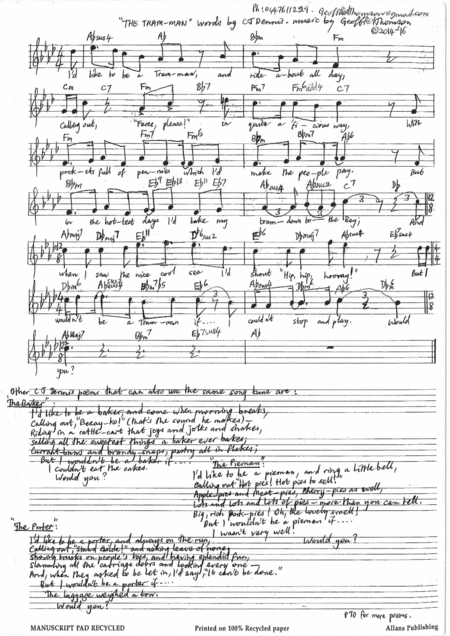 Ph: 0447611299. Geoffrethomson@gmail.com
"THE TRAM-MAN" words by CJ Dennis. music by Geoffre Thomson
©2014-16
Absus4 Ab Bbm Fm
I'd like to be a Tram-man, and ride a-bout all day,
Cm C7 Fm Bb7 Fm7 C7
Calling out, "Fares, please!" in quite a fi-cious way, With
Fm Fm7 Fm6 Bbm Bbm7 Ab6
pock-ets full of pen-nies which I'd make the peo-ple pay. But
Bbm Eb9 Eb13 Eb11 Eb7 Absus4 Absus2 C7 Db
in the hot-test days I'd take my tram down to the Bay; And
Dbm6 Dbmaj7 Eb11 Db6sus2 Eb6 Dbmaj7 Absus4 Ebsus4
when I saw the nice cool sea I'd shout "Hip, hip, hooray!" But I
Dbm6 Bbm7b5 Eb6 Absus4 Dbm6 Ab6 Dbm
wouldn't be a Tram-man if.... couldn't stop and play. Would
Abmaj7 Bbm7 Eb7sus4 Ab
you?
Other CJ Dennis poems that can also use the same song tune are:
"The Baker"
I'd like to be a baker, and come when morning breaks,
Calling out, "Beeay-ko!" (that's the sound he makes)—
Riding in a rattle-cart that jogs and jolts and shakes,
Selling all the sweetest things a baker ever bakes;
Currant-buns and brandy-snaps, pastry all in flakes;
But I wouldn't be a baker if....
I couldn't eat the cakes.
Would you?
"The Pieman":
I'd like to be a pieman, and ring a little bell,
Calling out "Hot pies! Hot pies to sell!"
Apple pies and Meat-pies, Cherry-pies as well,
Lots and lots and lots of pies—more than you can tell.
Big, rich pork-pies! Oh, the lovely smell!
But I wouldn't be a pieman if....
I wasn't very well.
Would you?
"The Porter":
I'd like to be a porter, and always on the run,
Calling out, "Stand aside!" and asking leave of none.
Shoving trucks on people's toes, and having splendid fun,
Slamming all the carriage doors and locking every one—
And, when they asked to be let in, I'd say, "It can't be done."
But I wouldn't be a porter if....
The luggage weighed a ton.
Would you?
PTO for more poems.
MANUSCRIPT PAD RECYCLED
Printed on 100% Recycled paper
Allans Publishing